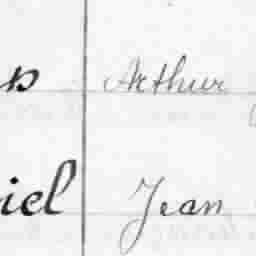 Arthur
iel Jean